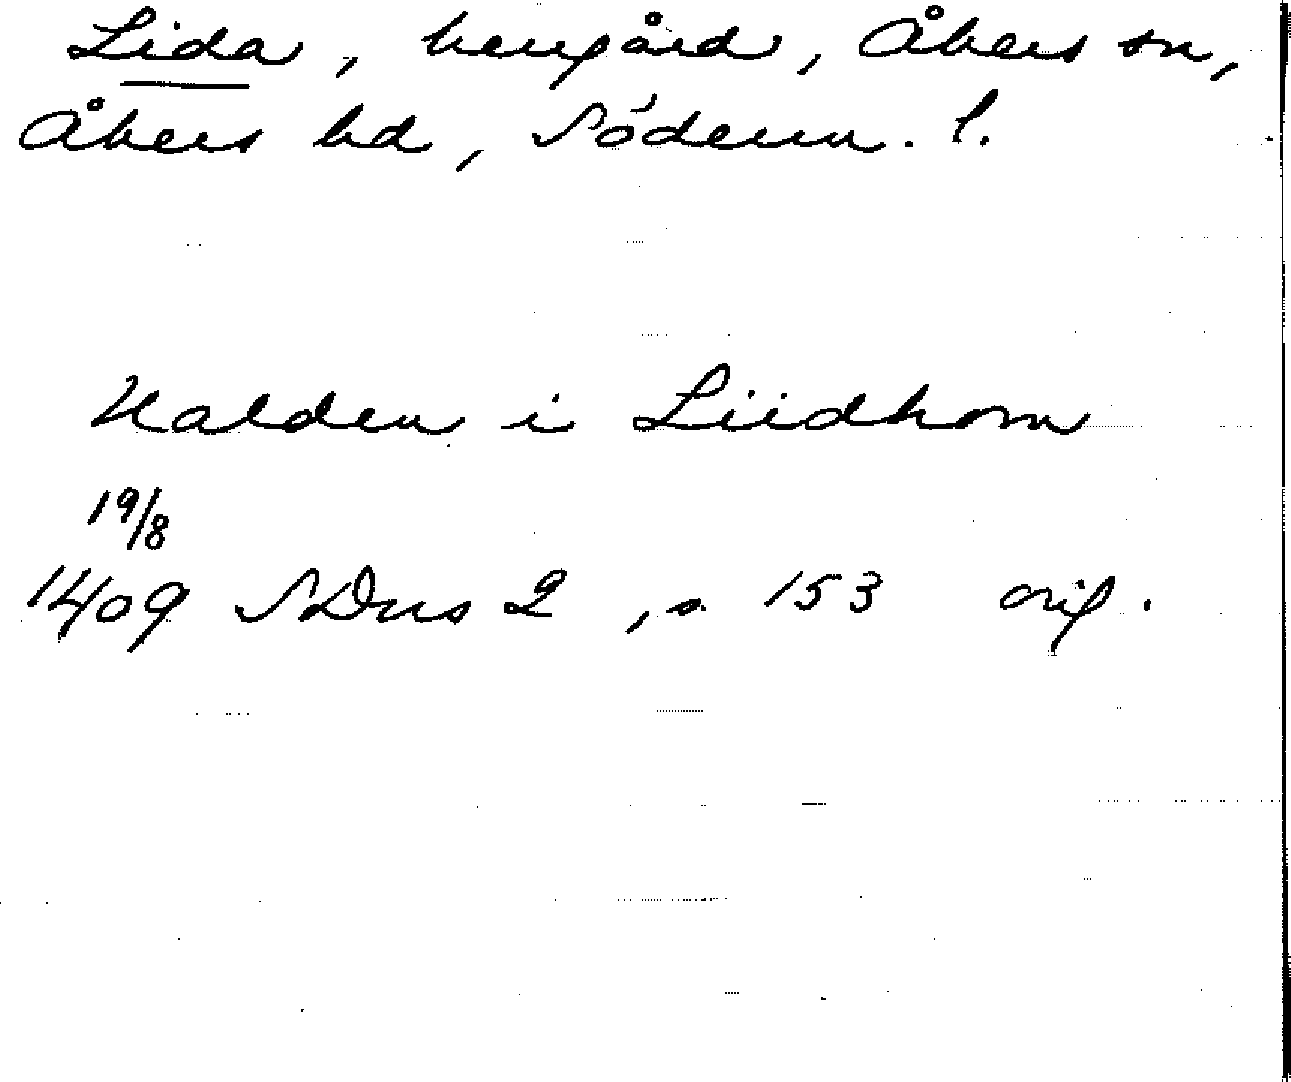 Lida, herrgård, Åkers sn,
Åkers hd, Söderm. l.
Halden i Liidhom
19/8
1409 SDns 2, s. 153 orig.